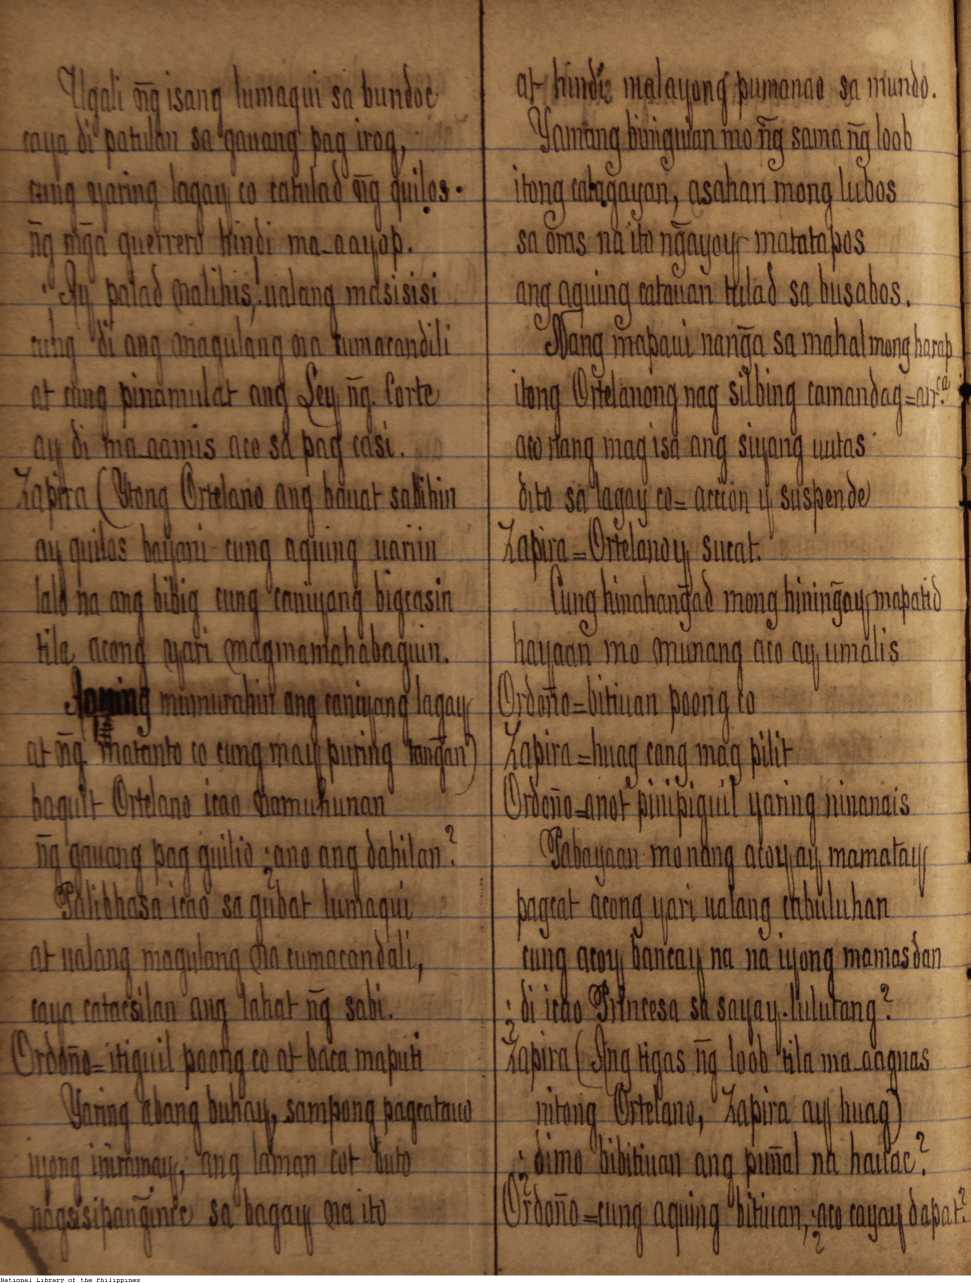 Ugali ñg isang lumaqui sa bundoc
caya di patulan sa gauang pag irog,
cung yaring lagay co catulad ñg quilos
ñg mğa guerrero hindi ma-aayop.
Ay palad malihis, ualang masisisi
di ang magulang na tumacandili
at cung pinamulat ang Ley ñg Corte
ay di ma-aamis aco sa pag casi.
Zapira (Ytong Ortelano ang bauat sabihin
ay quilos bayani cung aquing uariin
lalo na ang bibig cung caniyang bigcasin
tila acong yari magmamahabaguin.
mimurahin ang caniyang lagay
at ñg matanto co cung may puring tangan)
baquit Ortelano icao namuhunan
ñg gauang pag quilio ¿ano ang dahilan?
Palibhasa icao sa gubat lumaqui
at ualang magulang na cumacandali,
caya catacsilan ang lahat ñg sabi.
Ordoño=itiguil poong co at baca maputi
Yaring abang buhay, sampong pagcatauo
niyong inirimay, ang laman cot buto
nagsisipanginic sa bagay na ito
at hindi malayong pumanao sa mundo.
Yamang biniguian mo ñg sama ñg loob
itong catagayan, asahan mong lubos
sa oras na ito ngayoy matatapos
ang aquing catauan tulad sa busabos.
Nang mapaui nanga sa mahal mong harap
itong Ortelanong nag silbing camandag=air.ca
aco nang mag isa ang siyang uutas
dito sa lagay co= accion y suspende
Zapira=Ortelanoy sucat.
Cung hinahangad mong hiningay mapatid
hayaan mo munang aco ay umalis
Ordoño=bitiuan poong co
Zapira=huag cang mag pilit
Ordoño=anot pinipiguil yaring ninanais
Pabayaan mo nang acoy ay mamatay
pagcat acong yari ualang cabuluhan
cung acoy bancay na na iyong mamasdan
¿di icao Princesa sa sayay lulutang?
Zapira (Ang tigas ñg loob tila ma-aagnas
nitong Ortelano, Zapira ay huag)
¿dimo bibitiuan ang puñal na hauac?
Ordoño=cung aquing bitiuan, ¿aco cayay dapat?
National Library of the Philippines